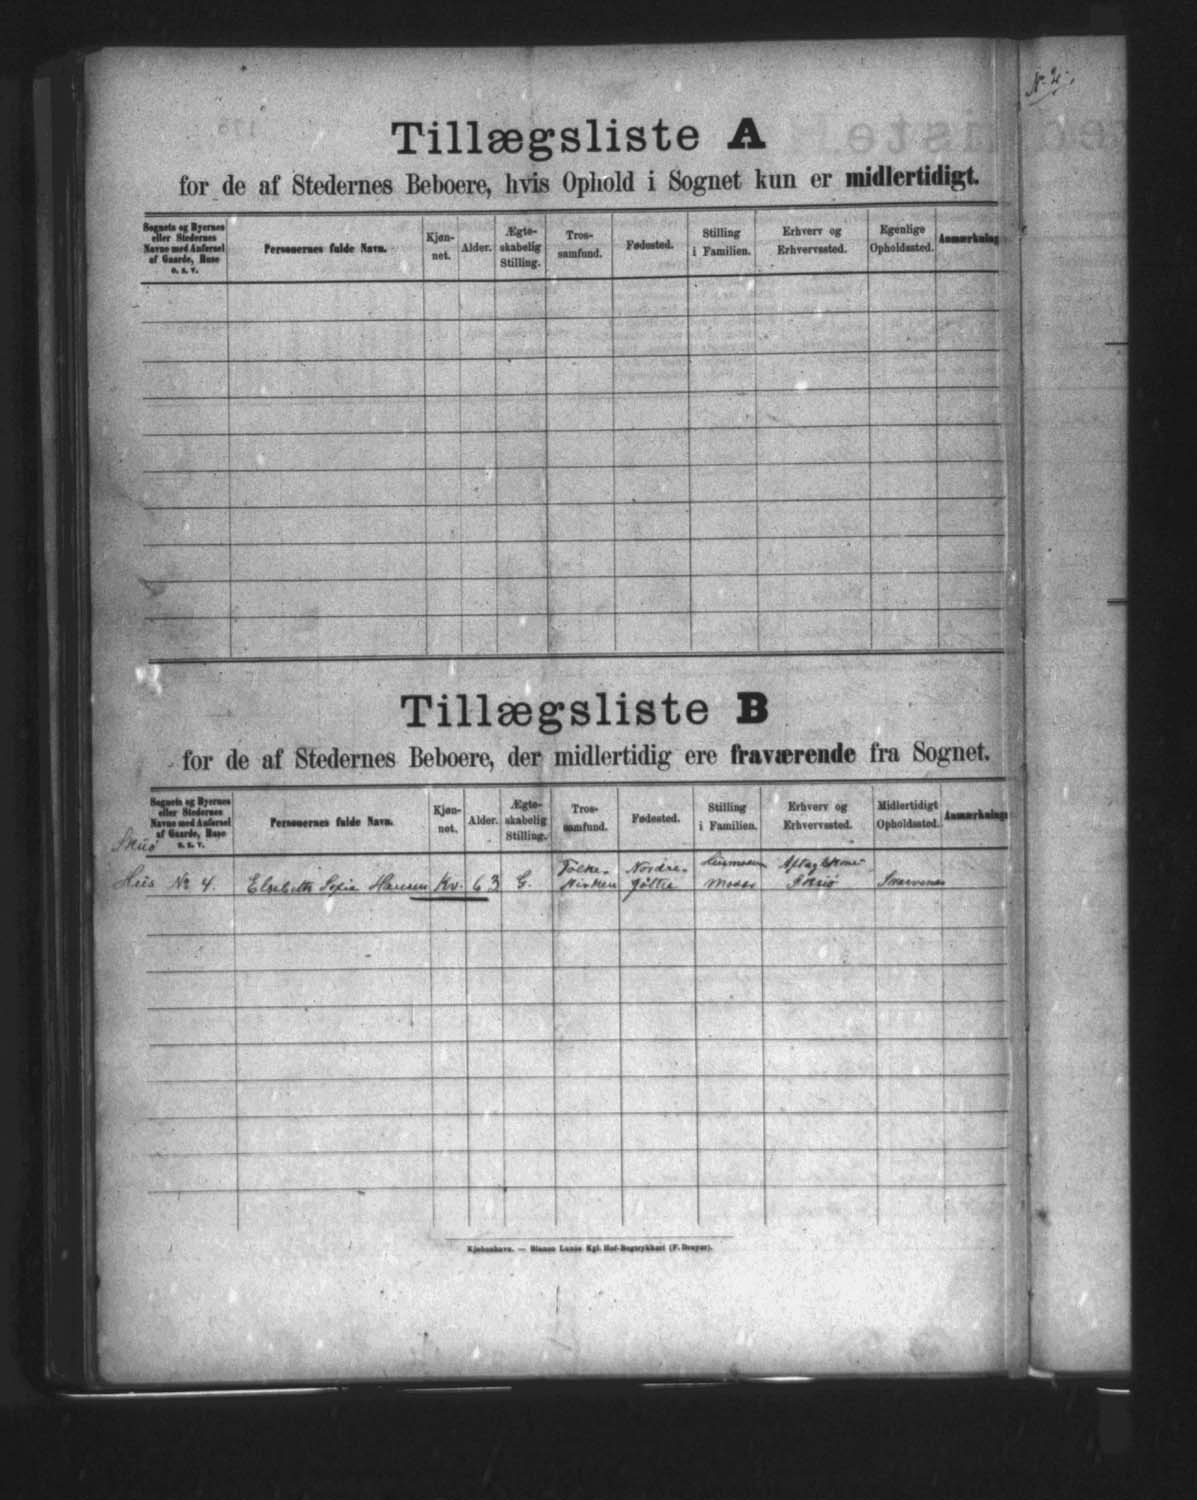 N. 2.
Tillægsliste A
for de af Stedernes Beboere, hvis Ophold i Sognet kun er midlertidigt.
Sognets og Byernes eller Stedernes Navne med Anførsel af Gaarde, Huse o. s. v.
Personernes fulde Navn.
Kjøn-net.
Alder.
Ægte-skabelig Stilling.
Tros-samfund.
Fødested.
Stilling i Familien.
Erhverv og Erhvervssted.
Egenlige Opholdssted.
Anmærkning
Tillægsliste B
for de af Stedernes Beboere, der midlertidig ere fraværende fra Sognet.
Sognets og Byernes eller Stedernes Navne med Anførsel af Gaarde, Huse o. s. v.
Personernes fulde Navn.
Kjøn-net.
Alder.
Ægte-skabelig Stilling.
Tros-samfund.
Fødested.
Stilling i Familien.
Erhverv og Erhvervssted.
Midlertidigt Opholdssted.
Anmærkning
Skuø
Hus No 4.
Elsebeth Sofie Hansen
Kv.
63
G.
Folke-kirken
Nordre-
Husmoder
Moder
Kjøbenhavn. — Bianco Lunos Kgl. Hof-Bogtrykkeri (F. Dreyer).